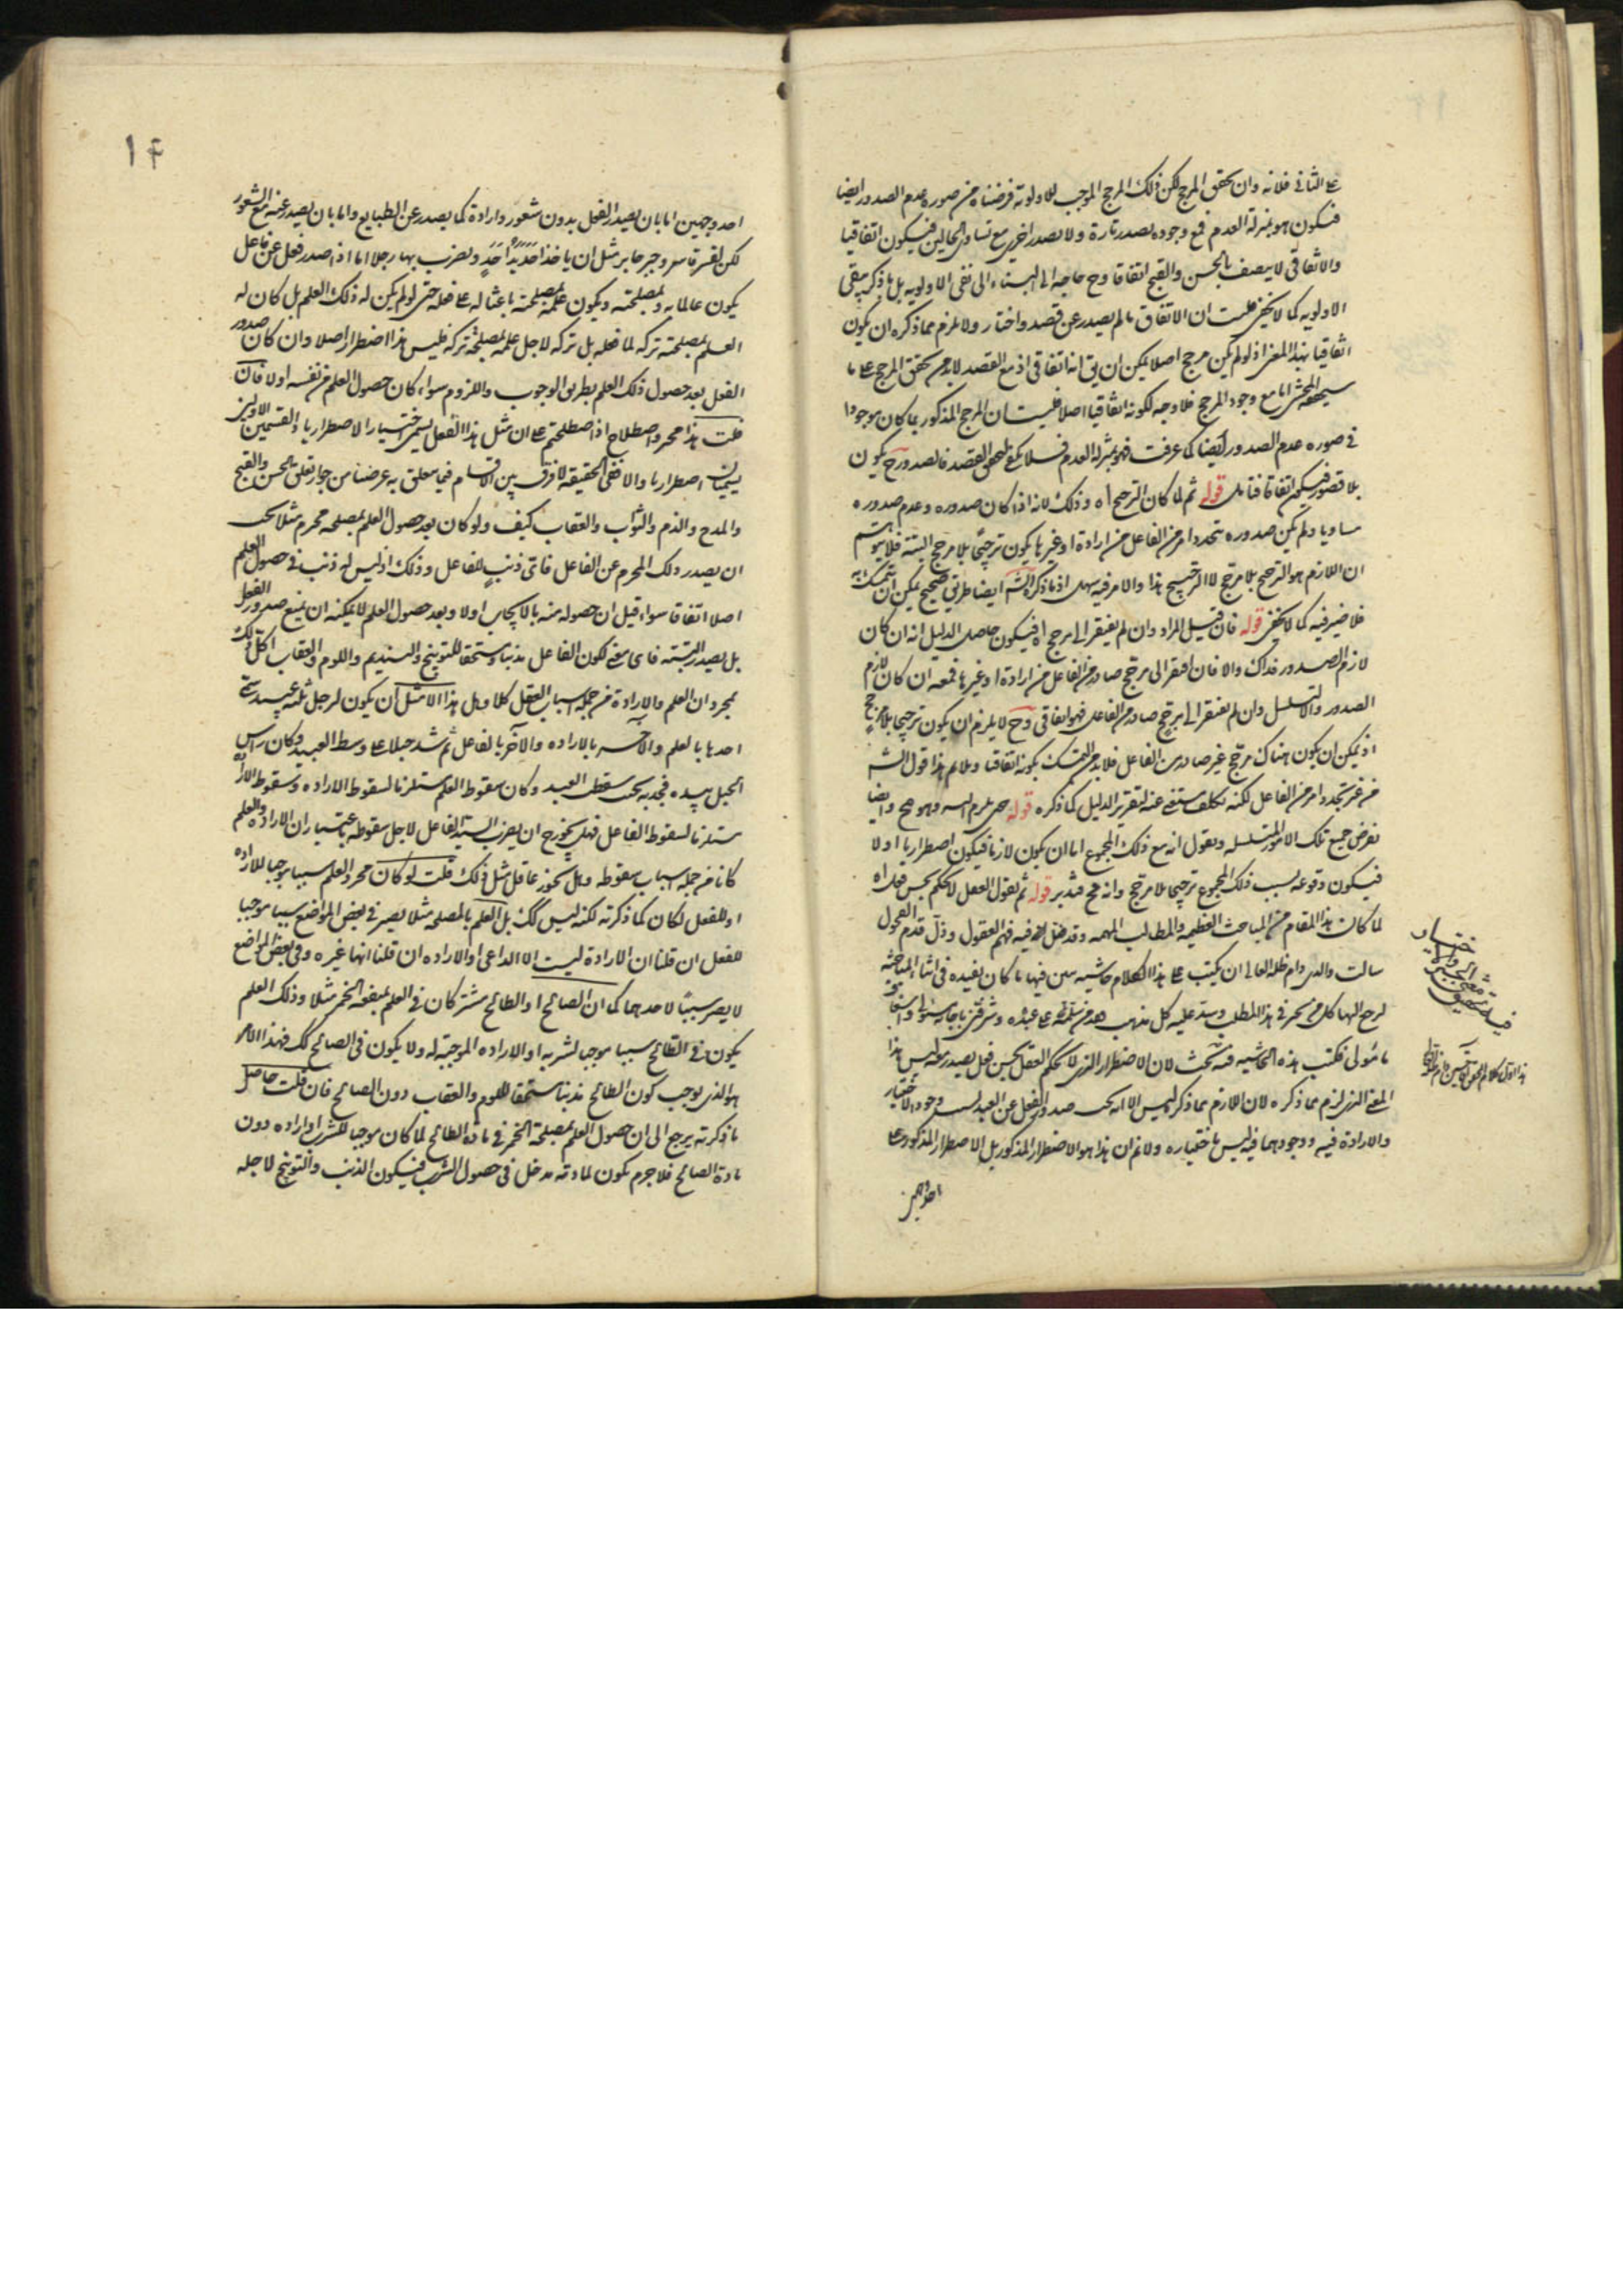 على الثانى فلانه وان تحقق المرجح لكن ذلك المرجح الموجب للاولوية فرضناه فى صوره عدم الصدور ايضا
فيكون هو بمنزلة العدم فمع وجوده يصدر تارة ولا يصدر اخرى مع تساوى الحالين فيكون اتفاقيا
والاتفاقى لا يتصف بالحسن والقبح اتفاقا وح حاجه الى البناء الى نفى الاولويه بل ما ذكره يبقى
الاولويه كما لا يخفى قلت ان الاتفاق ما لم يصدر عن قصد واختيار ولا يلزم مما ذكره ان يكون
اتفاقيا بهذا المعنى اذ لو لم يكن مرجح اصلا يمكن ان يق انه اتفاقى اذ مع القصد لا بد من تحقق المرجح على ما
سيحققه المحشى اما مع وجود المرجح فلا وجه لكونه اتفاقيا اصلا قلت ان المرجح المذكور لما كان موجودا
فى صوره عدم الصدور ايضا كما عرفت فهو بمنزلة العدم القصد فالصدور ح يكون
بلا قصور فيكون اتفاقا فتامل قوله ثم لما كان الترجيح اه وذلك لانه اذا كان صدوره وعدم صدوره
مساويا ولم يكن صدوره بتجدد امر من الفاعل من ارادة او غيرها يكون ترجيحا بلا مرجح البتة فلا يتوهم
ان اللازم هو الترجح بلا مرجح لا الترجيح هذا والامر فيه سهل اذ ما ذكره الشه ايضا طريق صحيح يمكن ان يتمسك به
فلا ضير فيه كما لا يخفى قوله فان قيل المراد وان لم يفتقر الى مرجح اه فيكون حاصل الدليل انه ان كان
لازم الصدور فذاك والا فان افتقر الى مرجح صادر من الفاعل من ارادة او غيرها فمعه ان كان لازم
الصدور والا تسلسل وان لم يفتقر الى مرجح صادر من الفاعل فهو اتفاقى وح لا يلزم ان يكون ترجيحا بلا مرجح
اذ يمكن ان يكون هناك مرجح غير صادر من الفاعل فلا بد من التمسك بكونه اتفاقيا ويلائم هذا قول الشه
من غير تجدد امر من الفاعل لكنه تكلف مستغنى عنه لتقرير الدليل كما ذكره قوله حتى يلزم التسه وهو مح وايضا
نفرض جميع تلك الامور المتسلسله ونقول انه مع ذلك المجموع اما ان يكون لازما فيكون اضطراريا اولا
فيكون وقوعه بسبب ذلك المجموع ترجيحا بلا مرجح وانه مح فتدبر قوله ثم نقول العقل لا يحكم بحسن فعل اه
لما كان هذا المقام من المباحث العظيمه والمطالب المهمه وقد ضل فيه فهم العقول وذل قدم الفحول
سالت والدى دام ظله العالى ان يكتب على هذا الكلام حاشيه يبين فيها ما كان يفيده فى اثناء المباحثه
ليرجع اليها كل من تحير فى هذا المطلب وسد عليه كل مذهب وشرفنى باجابة
مامولى فكتب هذه الحاشيه فيه بحث لان الاضطرار الذى لا يحكم العقل بحسن فعل يصدر معه ليس هذا
المعنى الذى لزم مما ذكره لان اللازم مما ذكر ليس الا انه يجب صدور الفعل عن العبد بسبب وجود الاختيار
والارادة فيه ووجودهما فيه ليس باختياره ولا نم ان هذا هو الاضطرار المذكور بل الاضطرار المذكور على
احد وجهين
١٤
احد وجهين اما بان يصدر الفعل بدون شعور وارادة كما يصدر عن الطبايع واما بان يصدر عنه مع الشعور
لكن لقسر قاسر وجبر جابر مثل ان ياخذ احد يد احد ويضرب بها رجلا اما اذا صدر فعل عن فاعل
يكون عالما به وبمصلحته ويكون علمه بمصلحته باعثا له على فعله حتى لو لم يكن له ذلك العلم بل كان له
العلم بمصلحة تركه لما فعله بل تركه لاجل علمه بمصلحة تركه فليس هذا اضطرارا اصلا وان كان صدور
الفعل بعد حصول ذلك العلم بطريق الوجوب واللزوم سواء كان حصول العلم من نفسه اولا فان
قلت هذا مجرد اصطلاح اذا اصطلحتم على ان مثل هذا الفعل يسمى اختياريا لا اضطراريا والقسمين الاولين
يسميان اضطراريا والا ففى الحقيقة لا فرق بين الاقسام فيما يتعلق به غرضنا من جواز تعلق الحسن والقبح
والمدح والذم والثواب والعقاب كيف ولو كان بعد حصول العلم بمصلحه محرم مثلا يجب
ان يصدر ذلك المحرم عن الفاعل فاى ذنب للفاعل وذلك اذ ليس له ذنب فى حصول العلم
اصلا اتفاقا سواء قيل ان حصوله منه بالايجاب اولا وبعد حصول العلم لا يمكنه ان يمنع صدور الفعل
بل يصدر البتة فاى معنى لكون الفاعل مذنبا ومستحقا للتوبيخ والتنديم واللوم والعقاب اكل ذلك
بمجرد ان العلم والارادة من جمله اسباب الفعل كلا وهل هذا الا مثل ان يكون لرجل ثلثه عبيد سمى
احدها بالعلم والآخر بالاراده والآخر بالفاعل ثم شد حبلا على وسط العبيد وكان راس
الحبل بيده فجذبه بحيث سقط العبيد وكان سقوط العلم مستلزما لسقوط الاراده وسقوط الاراده
مستلزما لسقوط الفاعل فهل يجوز ح ان يضرب السيد الفاعل لاجل سقوطه باعتبار ان الاراده والعلم
كانا من جمله اسباب سقوطه وهل يجوز عاقل مثل ذلك قلت لو كان مجرد العلم سببا موجبا للاراده
او للفعل لكان كما ذكرته لكنه ليس كك بل العلم بالمصلحه مثلا يصير فى بعض المواضع سببا موجبا
للفعل ان قلنا ان الارادة ليست الا الداعى او الاراده ان قلنا انها غيره وفى بعض المواضع
لا يصير سببا لاحدهما كما ان الصالح والطالح مشتركان فى العلم بمنفعه الخمر مثلا وذلك العلم
يكون فى الطالح سببا موجبا لشربه او الاراده الموجبة له ولا يكون فى الصالح كك فهذا الامر
هو الذى يوجب كون الطالح مذنبا مستحقا للوم والعقاب دون الصالح فان قلت حاصل
ما ذكرته يرجع الى ان حصول العلم بمصلحة الخمر فى مادة الطالح لما كان موجبا للشرب او اراده دون
مادة الصالح فلا جرم يكون لمادته مدخل فى حصول الشرب فيكون الذنب والتوبيخ لاجله